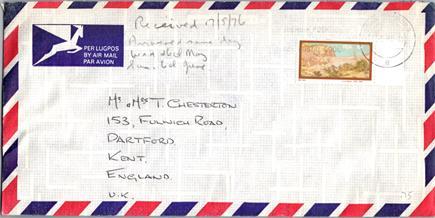 Received 7/5/76
Answered same day
PER LUGPOS
BY AIR MAIL
PAR AVION
Mr. & Mrs T. CHESTERTON
153, FULWICH ROAD,
DARTFORD
KENT.
ENGLAND.
U.K.
75